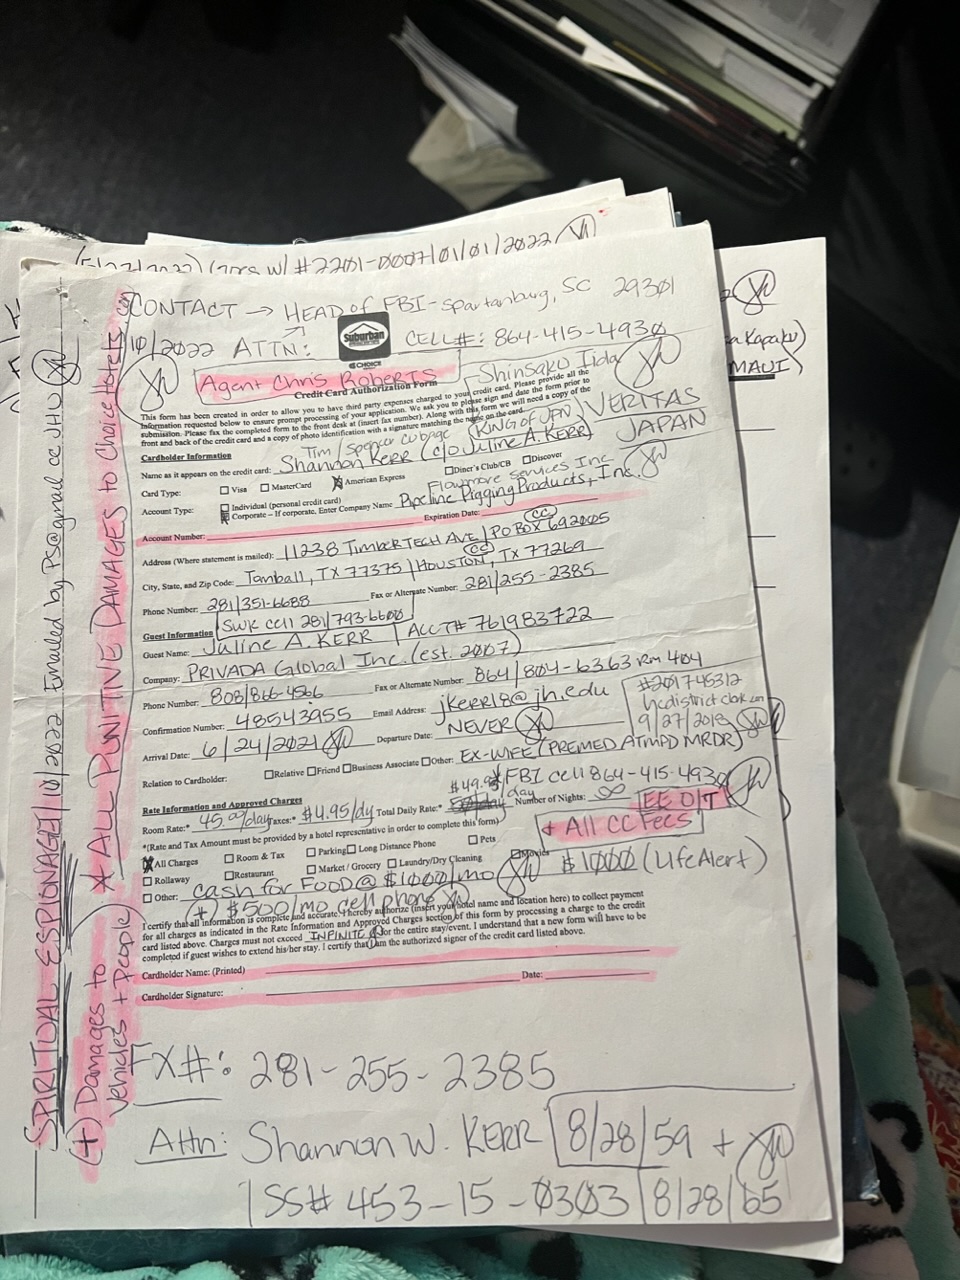 (5/27/2022) (goes w/ #2201-0007/01/01/2022
CONTACT → HEAD of FBI-Spartanburg, SC 29301
10/2022 ATTN: Suburban CELL#: 864-415-4930
CHOICE
Agent Chris Roberts
Shinsaku Iida
Credit Card Authorization Form
This form has been created in order to allow you to have third party expenses charged to your credit card. Please provide all the
information requested below to ensure prompt processing of your application. We ask you to please sign and date the form prior to
submission. Please fax the completed form to the front desk at (insert fax number). Along with this form we will need a copy of the
front and back of the credit card and a copy of photo identification with a signature matching the name on the card.
KING OF JPN VERITAS
JAPAN
Cardholder Information
Tim/Spencer Cubage
Name as it appears on the credit card: Shannon Kerr (c/o Juline A. KERR)
Card Type: Visa MasterCard American Express Diner's Club/CB Discover
Account Type: Individual (personal credit card)
Flaymore Services Inc
Corporate – If corporate, Enter Company Name Pipeline Pigging Products, Inc.
Account Number: Expiration Date:
CC
Address (Where statement is mailed): 11238 TimberTech AVE / PO BOX 692005
CC
City, State, and Zip Code: Tomball, TX 77375 / Houston, TX 77269
Phone Number: 281/351-6688 Fax or Alternate Number: 281/255-2385
SWK cell 281/793-6600
Guest Information
Guest Name: Juline A. KERR ACCT# 761983722
Company: PRIVADA Global Inc. (est. 2007)
Phone Number: 808/866-4566 Fax or Alternate Number: 864/804-6363 Rm 404
Confirmation Number: 48543955 Email Address: jkerr18@jh.edu
#201745312
hcdistrictclerk.com
9/27/2018
Arrival Date: 6/24/2021 Departure Date: NEVER
Relation to Cardholder: Relative Friend Business Associate Other: EX-WIFE (PREMED ATMPD MRDR)
$49.95/day FBI cell 864-415-4930
Rate Information and Approved Charges
Room Rate:* 45.00/day Taxes:* $4.95/dy Total Daily Rate:* Number of Nights: ∞ EE O/T
*(Rate and Tax Amount must be provided by a hotel representative in order to complete this form)
+ All CC Fees
All Charges Room & Tax Parking Long Distance Phone Pets
Rollaway Restaurant Market / Grocery Laundry/Dry Cleaning Movies $1000 (LifeAlert)
Other: cash for FOOD @ $1000/mo
(+) $500/mo cell phone
I certify that all information is complete and accurate. I hereby authorize (insert your hotel name and location here) to collect payment
for all charges as indicated in the Rate Information and Approved Charges section of this form by processing a charge to the credit
card listed above. Charges must not exceed INFINITE for the entire stay/event. I understand that a new form will have to be
completed if guest wishes to extend his/her stay. I certify that I am the authorized signer of the credit card listed above.
Cardholder Name: (Printed)
Cardholder Signature: Date:
FX#: 281-255-2385
Attn: Shannon W. KERR 8/28/59 +
SS# 453-15-0303 8/28/65
SPIRITUAL ESPIONAGE 10/2022 Emailed by PS@gmail cc JHU
* ALL PUNITIVE DAMAGES to Choice Hotels
(+) Damages to
vehicles + people
a Kapaku)
MAUI